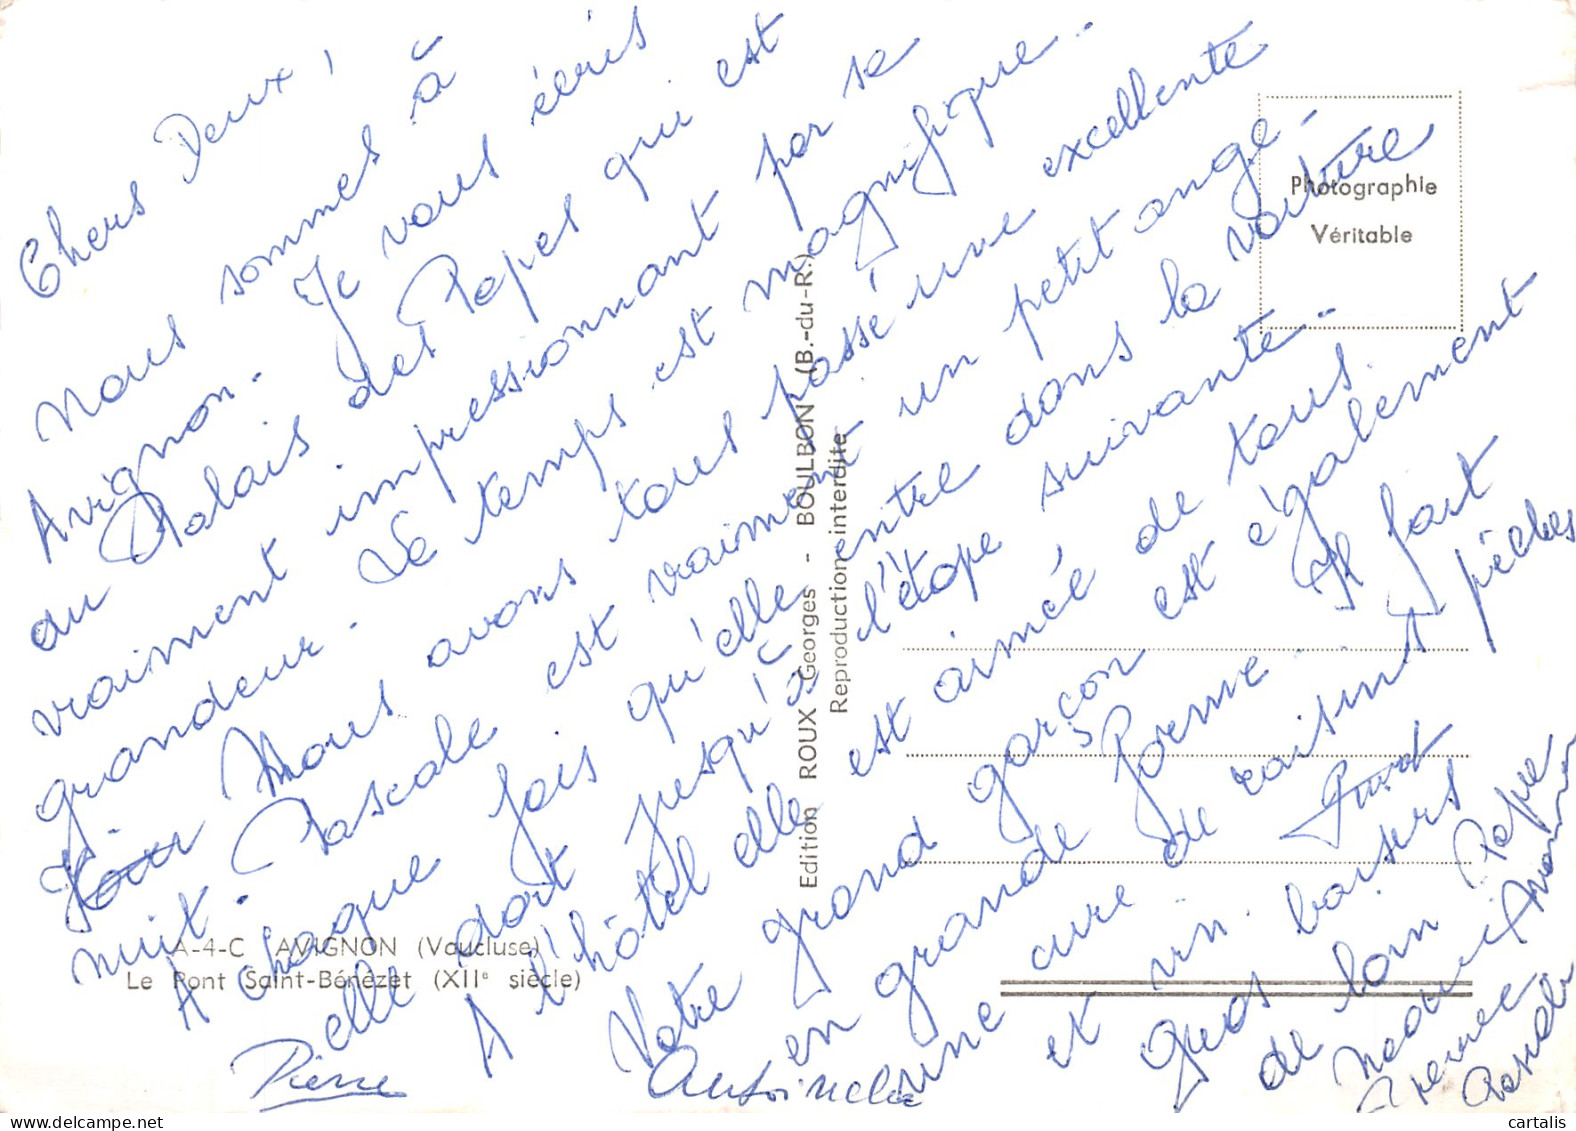 Chers Deux !
Nous sommes à
Avignon - Je vous écris
au Palais des Papes qui est
vraiment impressionnant par sa
grandeur. Le temps est magnifique.
Nous avons tous passé une excellente
nuit. Pascale est vraiment un petit ange -
A chaque fois qu'elle entre dans la voiture
elle dort jusqu'à l'étape suivante -
A l'hôtel elle est aimée de tous.
Votre grand garçon est également
en grande forme. Il fait
une cure de raisin et pêches
et un
gros baisers
de loin Pape
Mamie
Pierre
Antoinette
Photographie
Véritable
Edition ROUX Georges - BOULBON (B.-du-R.)
Reproduction interdite
A-4-C AVIGNON (Vaucluse)
Le Pont Saint-Bénézet (XII° siècle)
cartalis